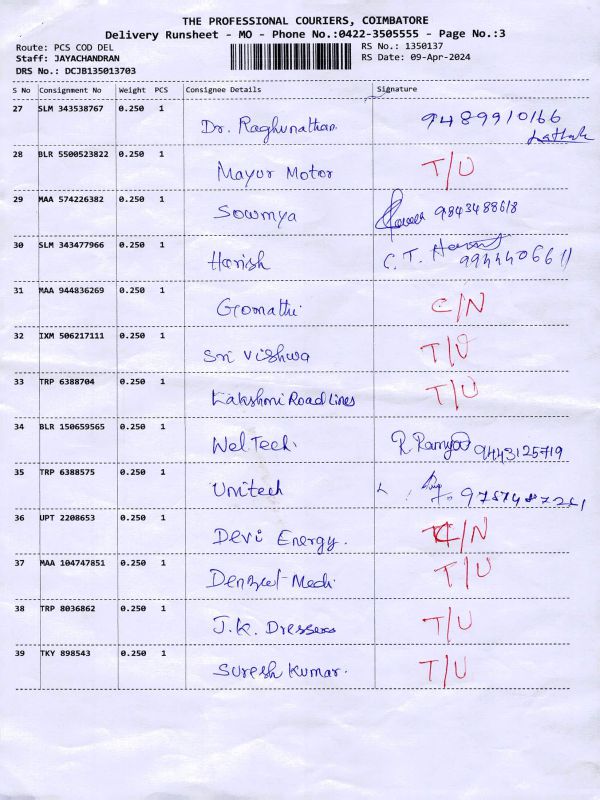 THE PROFESSIONAL COURIERS, COIMBATORE
Delivery Runsheet - MO - Phone No.:0422-3505555 - Page No.:3
Route: PCS COD DEL RS No.: 1350137
Staff: JAYACHANDRAN RS Date: 09-Apr-2024
DRS No.: DCJB135013703
S No Consignment No Weight PCS Consignee Details Signature
27 SLM 343538767 0.250 1 Dr. Raghunathan 9489910166
28 BLR 5500523822 0.250 1 Mayur Motor T/U
29 MAA 574226382 0.250 1 Sowmya 9843488618
30 SLM 343477966 0.250 1 Harish C.T. 9944406611
31 MAA 944836269 0.250 1 Gomathi C/N
32 IXM 506217111 0.250 1 Sri Vishwa T/U
33 TRP 6388704 0.250 1 Lakshmi Road Lines T/U
34 BLR 150659565 0.250 1 Wel Tech. R. Ramya 9443125719
35 TRP 6388575 0.250 1 Unitech
36 UPT 2208653 0.250 1 Devi Energy. C/N
37 MAA 104747851 0.250 1 T/U
38 TRP 8036862 0.250 1 J.K. Dresses T/U
39 TKY 898543 0.250 1 Suresh Kumar. T/U